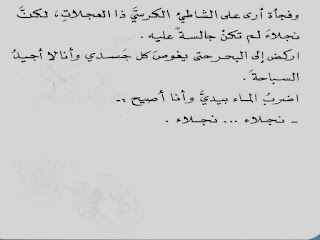 وفجأة أرى على الشاطئ الكرسيَّ ذا العجلاتِ، لكنَّ
نجلاءَ لم تكنْ جالسةً عليه .
اركض إلى البحر حتى يغوصَ كل جَسدي وأنا لا أجيدُ
السباحةَ .
اضربُ الماء بيديَّ وأنا أصيح :ـ
ـ نجلاء ... نجلاء .